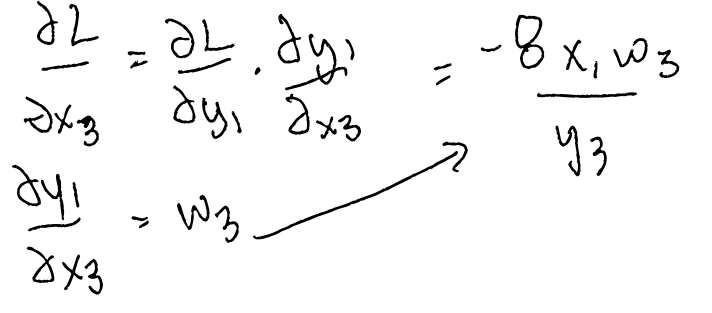 ∂L/∂x₃ = ∂L/∂y₁ · ∂y₁/∂x₃ = -8x₁w₃/y₃
∂y₁/∂x₃ = w₃